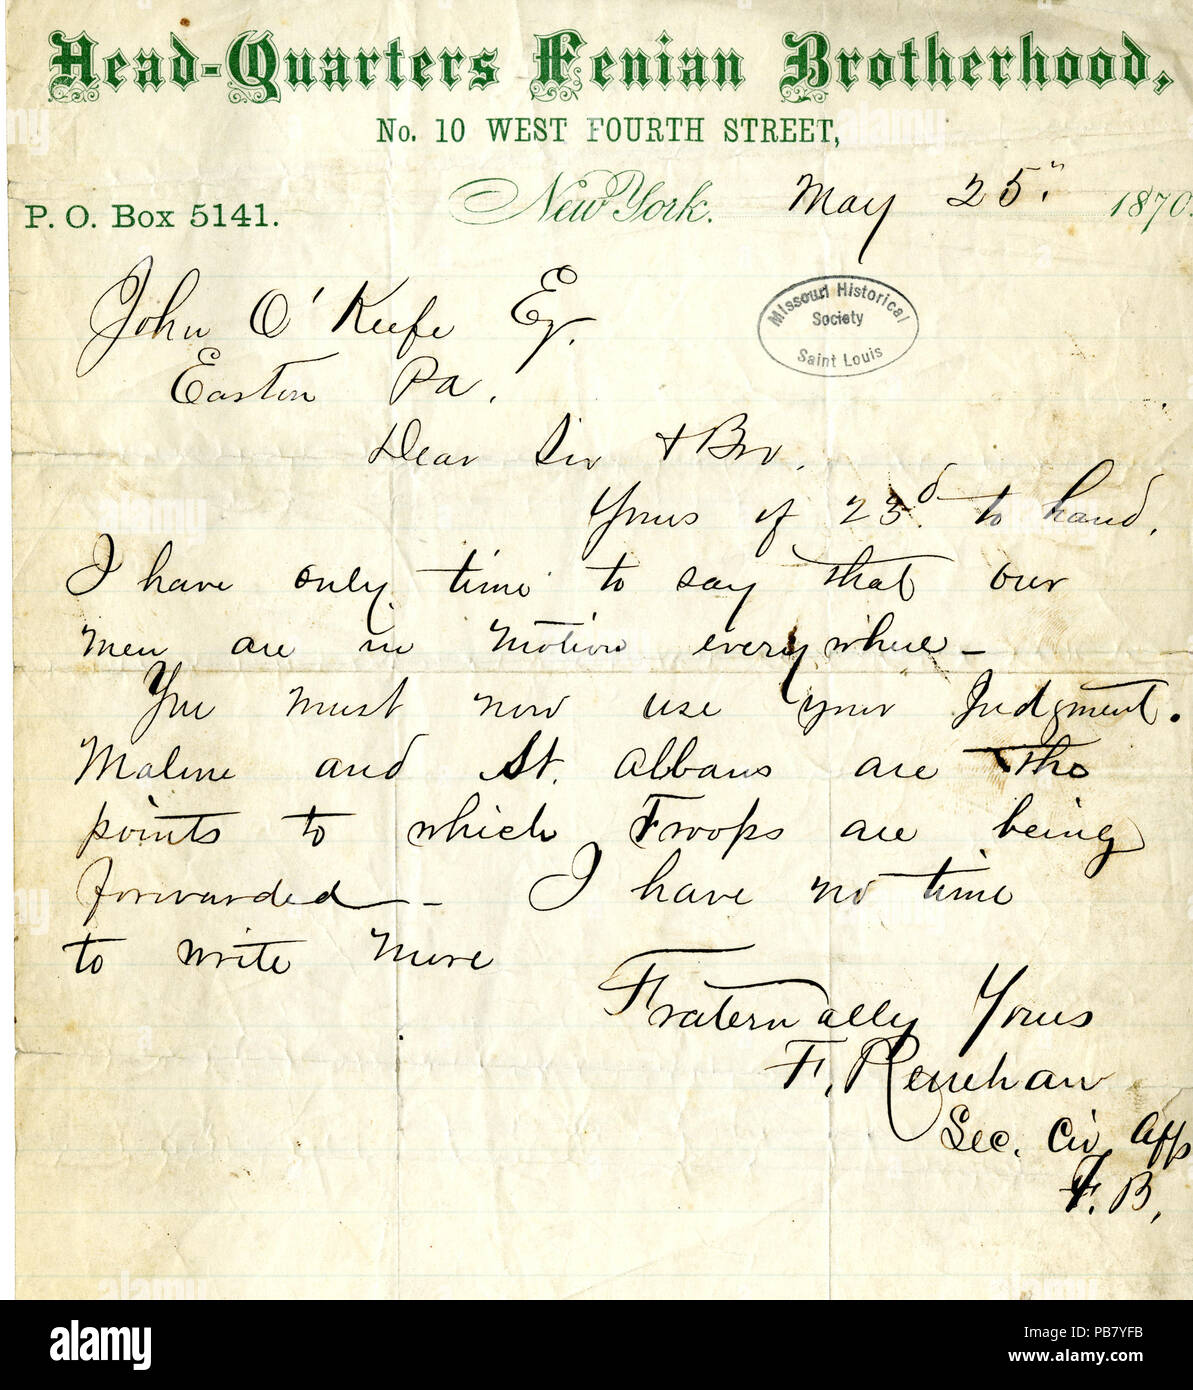 Head-Quarters Fenian Brotherhood,
No. 10 WEST FOURTH STREET,
P. O. Box 5141. New York. May 25" 1870.
John O'Keefe Eq.
Easton Pa.
Missouri Historical
Society
Saint Louis
Dear Sir & Bro.
Yours of 23d. to hand.
I have only time to say that our
men are in motion everywhere -
You must now use your Judgment.
Malone and St. Albans are the
points to which Troops are being
forwarded - I have no time
to write more
Fraternally Yours
F. Renehan
Sec. Civ. Affs
F. B.
alamy
Image ID: PB7YFB
www.alamy.com